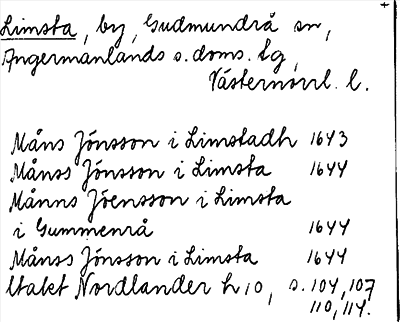 Limsta, by, Gudmundrå sn,
Ångermanlands s. doms. tg,
Västernorrl. l.
Måns Jónsson i Limstadh 1643
Månss Jónsson i Limsta 1644
Månns Jóensson i Limsta
i Gummenrå 1644
Månss Jónsson i Limsta 1644
Utakt Nordlander h 10, s. 104, 107
110, 114.